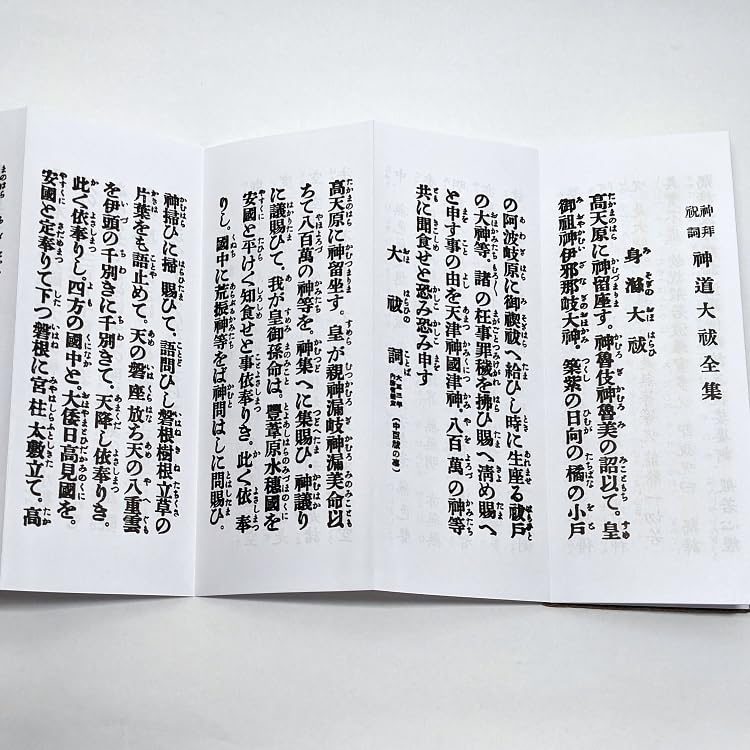 神拜祝詞 神道大祓全集
身滌大祓
高天原に神留座す。神魯伎神魯美の詔以て。皇
御祖神伊邪那岐大神。築紫の日向の橘の小戸
の阿波岐原に御禊祓へ給ひし時に生座る祓戸
の大神等。諸の枉事罪穢を拂ひ賜へ清め賜へ
と申す事の由を天津神國津神。八百萬の神等
共に聞食せと恐み恐み申す
大祓詞
高天原に神留坐す。皇が親神漏岐神漏美命以
ちて八百萬の神等を。神集へに集賜ひ。神議り
に議賜ひて。我が皇御孫命は。豐葦原水穗國を
安國と平けく知食せと事依奉りき。此く依奉
りし。國中に荒振神等をば神問はしに問賜ひ。
神掃ひに掃賜ひて。語問ひし磐根樹根立草の
片葉をも語止めて。天の磐座放ち天の八重雲
を伊頭の千別きに千別きて。天降し依奉りき。
此く依奉りし。四方の國中と。大倭日高見國を。
安國と定奉りて下つ磐根に宮柱太敷立て。高